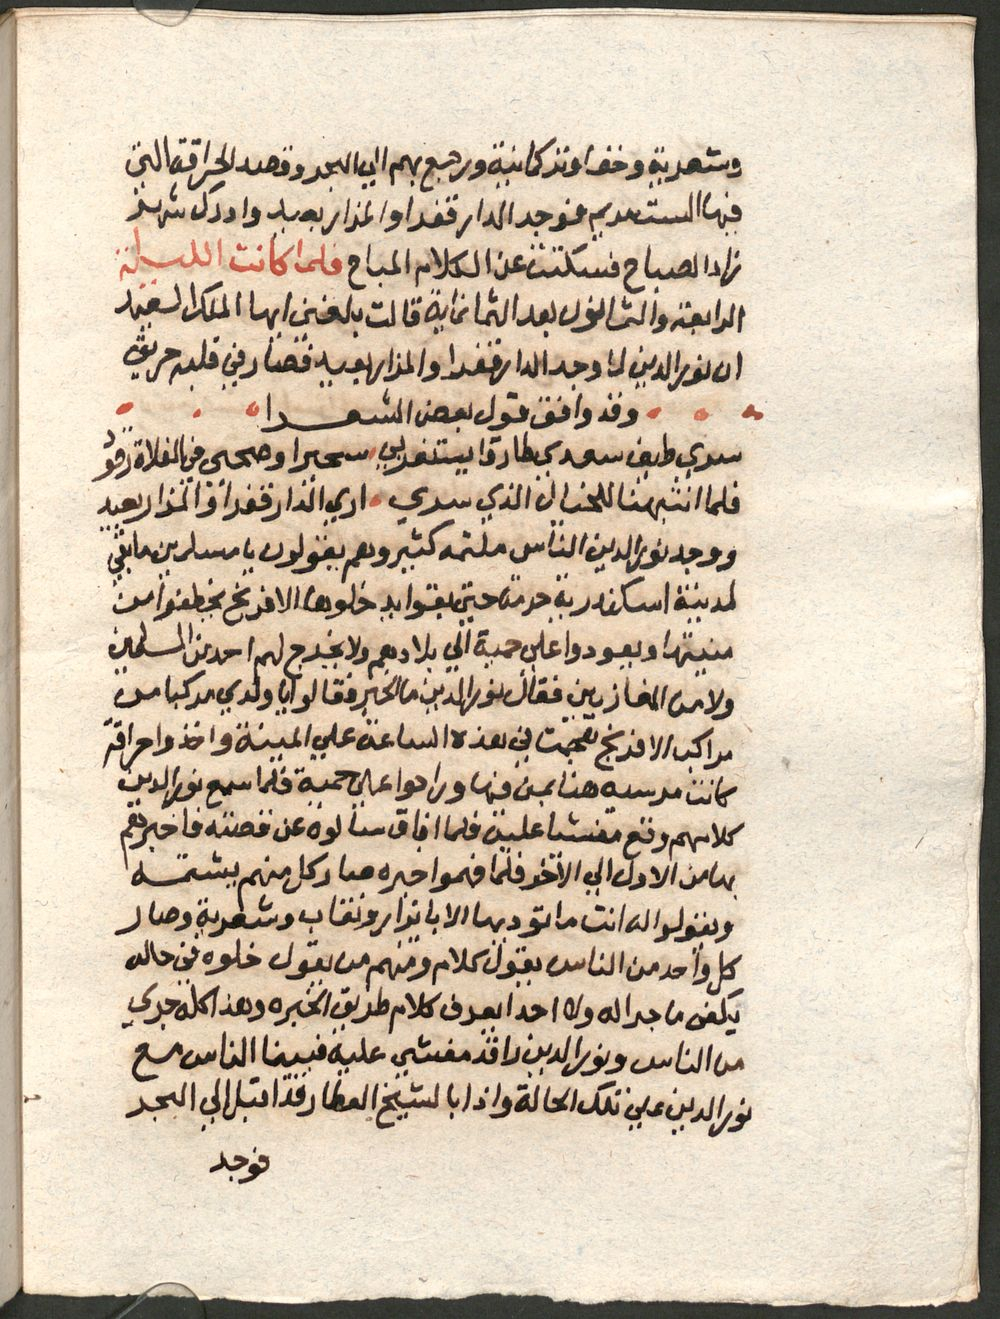 وشعرية وخف اوتركمانية ورجع بهم الي البحر وقصد الحراقة التي
فيها الست مريم فوجد الدار قفرا والمزار بعيد وادرك شهر
زاد الصباح فسكتت عن الكلام المباح فلما كانت الليلة
الرابعة والثمانون بعد الثمانماية قالت بلغني ايها الملك السعيد
ان نور الدين لما وجد الدار قفرا والمزار بعيد فصار في قلبه حريق
وقد وافق قول بعض الشعرا
سري طيف سعدي طارقا يستفزني سحيرا وصحبي في الفلاة رقود
فلما انتبهنا للخيال الذي سري اري الدار قفرا والمزار بعيد
ووجد نور الدين الناس ملتمه كثير وهم يقولون يا مسلمين ما بقي
لمدينة اسكندرية حرمة حتي بقوا يدخلوها الافرنج يخطفوا من
مينتها ويعودوا علي حمية الي بلادهم ولا يخرج لهم احد من المسلمين
ولا من المغازيين فقال نور الدين ما الخبر فقالوا يا ولدي مركبا من
مراكب الافرنج هجمت في هذه الساعة علي المينة واخذوا حراقة
كانت مرسيه هنا بمن فيها وراحوا علي حمية فلما سمع نور الدين
كلامهم وقع مغشيا عليه فلما افاق سالوه عن قصته فاخبرهم
بها من الاول الي الاخر فلما فهموا خبره صار كل منهم يشتمه
ويقولوا له انت ما تودبها الا بايزار ونقاب وشعرية وصار
كل واحد من الناس يقول كلام ومنهم من يقول خلوه في حاله
يكفي ما جرا له ولا احدا يعرف كلام طريق الخيره وهذا كله جري
من الناس ونور الدين راقد مغشي عليه فبينما الناس مع
نور الدين علي تلك الحالة واذا بالشيخ العطار قد اقبل الي البحر
فوجد